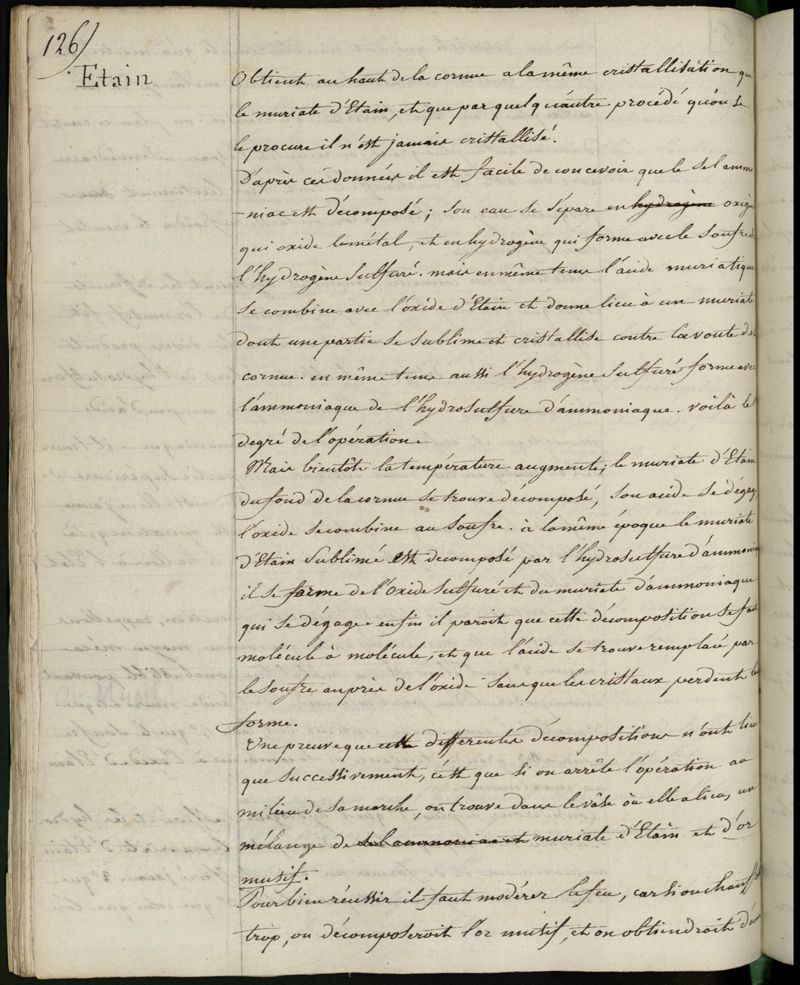 126)
Etain
Obtient au haut de la cornue a la même cristallisation que
le muriate d'Etain, et que par quelqu'autre procédé qu'on se
le procure il n'est jamais cristallisé.
D'après ces données il est facile de concevoir que le sel ammo
-niac est décomposé ; son eau se sépare en hydrogène oxigène
qui oxide le métal, et en hydrogène qui forme avec le soufre
l'hydrogène sulfuré. mais en même tems l'acide muriatique
se combine avec l'oxide d'Etain et donne lieu à un muriate
dont une partie se sublime et cristallise contre la voute de
cornue. en même tems aussi l'hydrogène sulfuré forme avec
l'ammoniaque de l'hydrosulfure d'ammoniaque. voilà le
degré de l'opération.
Mais bientôt la température augmente ; le muriate d'Etain
du fond de la cornue se trouve décomposé, son acide se dégage
l'oxide se combine au soufre. à la même époque le muriate
d'Etain sublimé est decomposé par l'hydrosulfure d'ammonia
il se forme de l'oxide sulfuré et du muriate d'ammoniaque
qui se dégage. enfin il paroit que cette décomposition se fait
molécule à molécule, et que l'acide se trouve remplacé par
le soufre auprès de l'oxide sans que les cristaux perdent leur
forme.
Une preuve que ces differentes décompositions n'ont lieu
que successivement, c'est que si on arrête l'opération au
milieu de sa marche, on trouve dans le vâse où elle a lieu, un
mélange de sel ammoniac et muriate d'Etain et d'or
musif.
Pour bien réussir il faut modérer le feu, car si on chauffe
trop, on décomposeroit l'or musif, et on obtiendroit